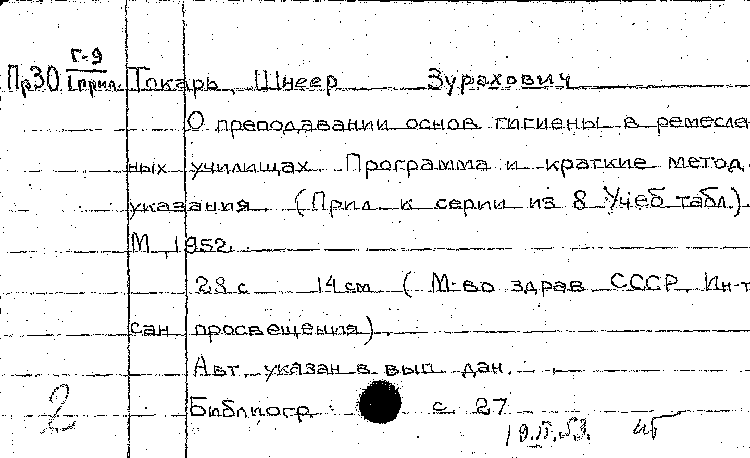 Пр30 Г-9
1 прил. Токарь, Шнеер Зурахович
О преподавании основ гигиены в ремесле-
ных училищах. Программа и краткие метод.
указания. (Прил. к серии из 8 Учеб. табл.).
М., 1952.
28 с. 14 см. (М-во здрав. СССР. Ин-т
сан. просвещения).
Авт. указан в вып. дан.
Библиогр. с. 27
2